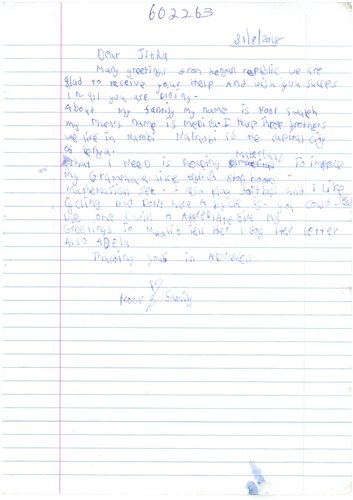 602263
31/8/2018
Dear Jitka
Many greetings from kenyan republic we are
glad to receive your help and wish you succes
in all you are doing.
About my family my name is Noor
my mum's name is Medina. I have three brothers
we live in Nairobi Nairobi is the capital city
of kenya.
What I need is Reading materials To improve
My Grammar like english story books
Mathematical set. I also play football and I like
Cycling but Don't have A bycle if you could send
Me one I will Appreciate Give My
Greetings To Tell Her I Got Her Letter
Also ADELA
Thanking you in Advance
Noor family